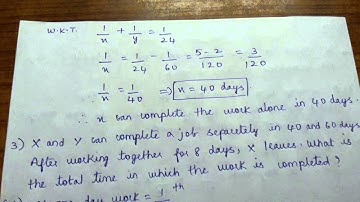 W.K.T. 1/x + 1/y = 1/24
1/x = 1/24 - 1/60 = 5-2/120 = 3/120
1/x = 1/40 ⇒ x = 40 days
∴ x can complete the work alone in 40 days
3) X and Y can complete a job separetely in 40 and 60 days
After working together for 8 days, X leaves. What is
the total time in which the work is completed?
day work = 1 th